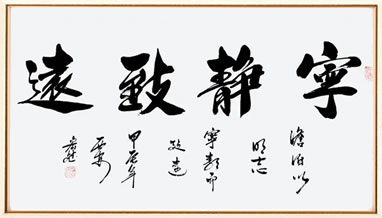 寧靜致遠
澹泊以
明志
寧靜而
致遠
甲辰年